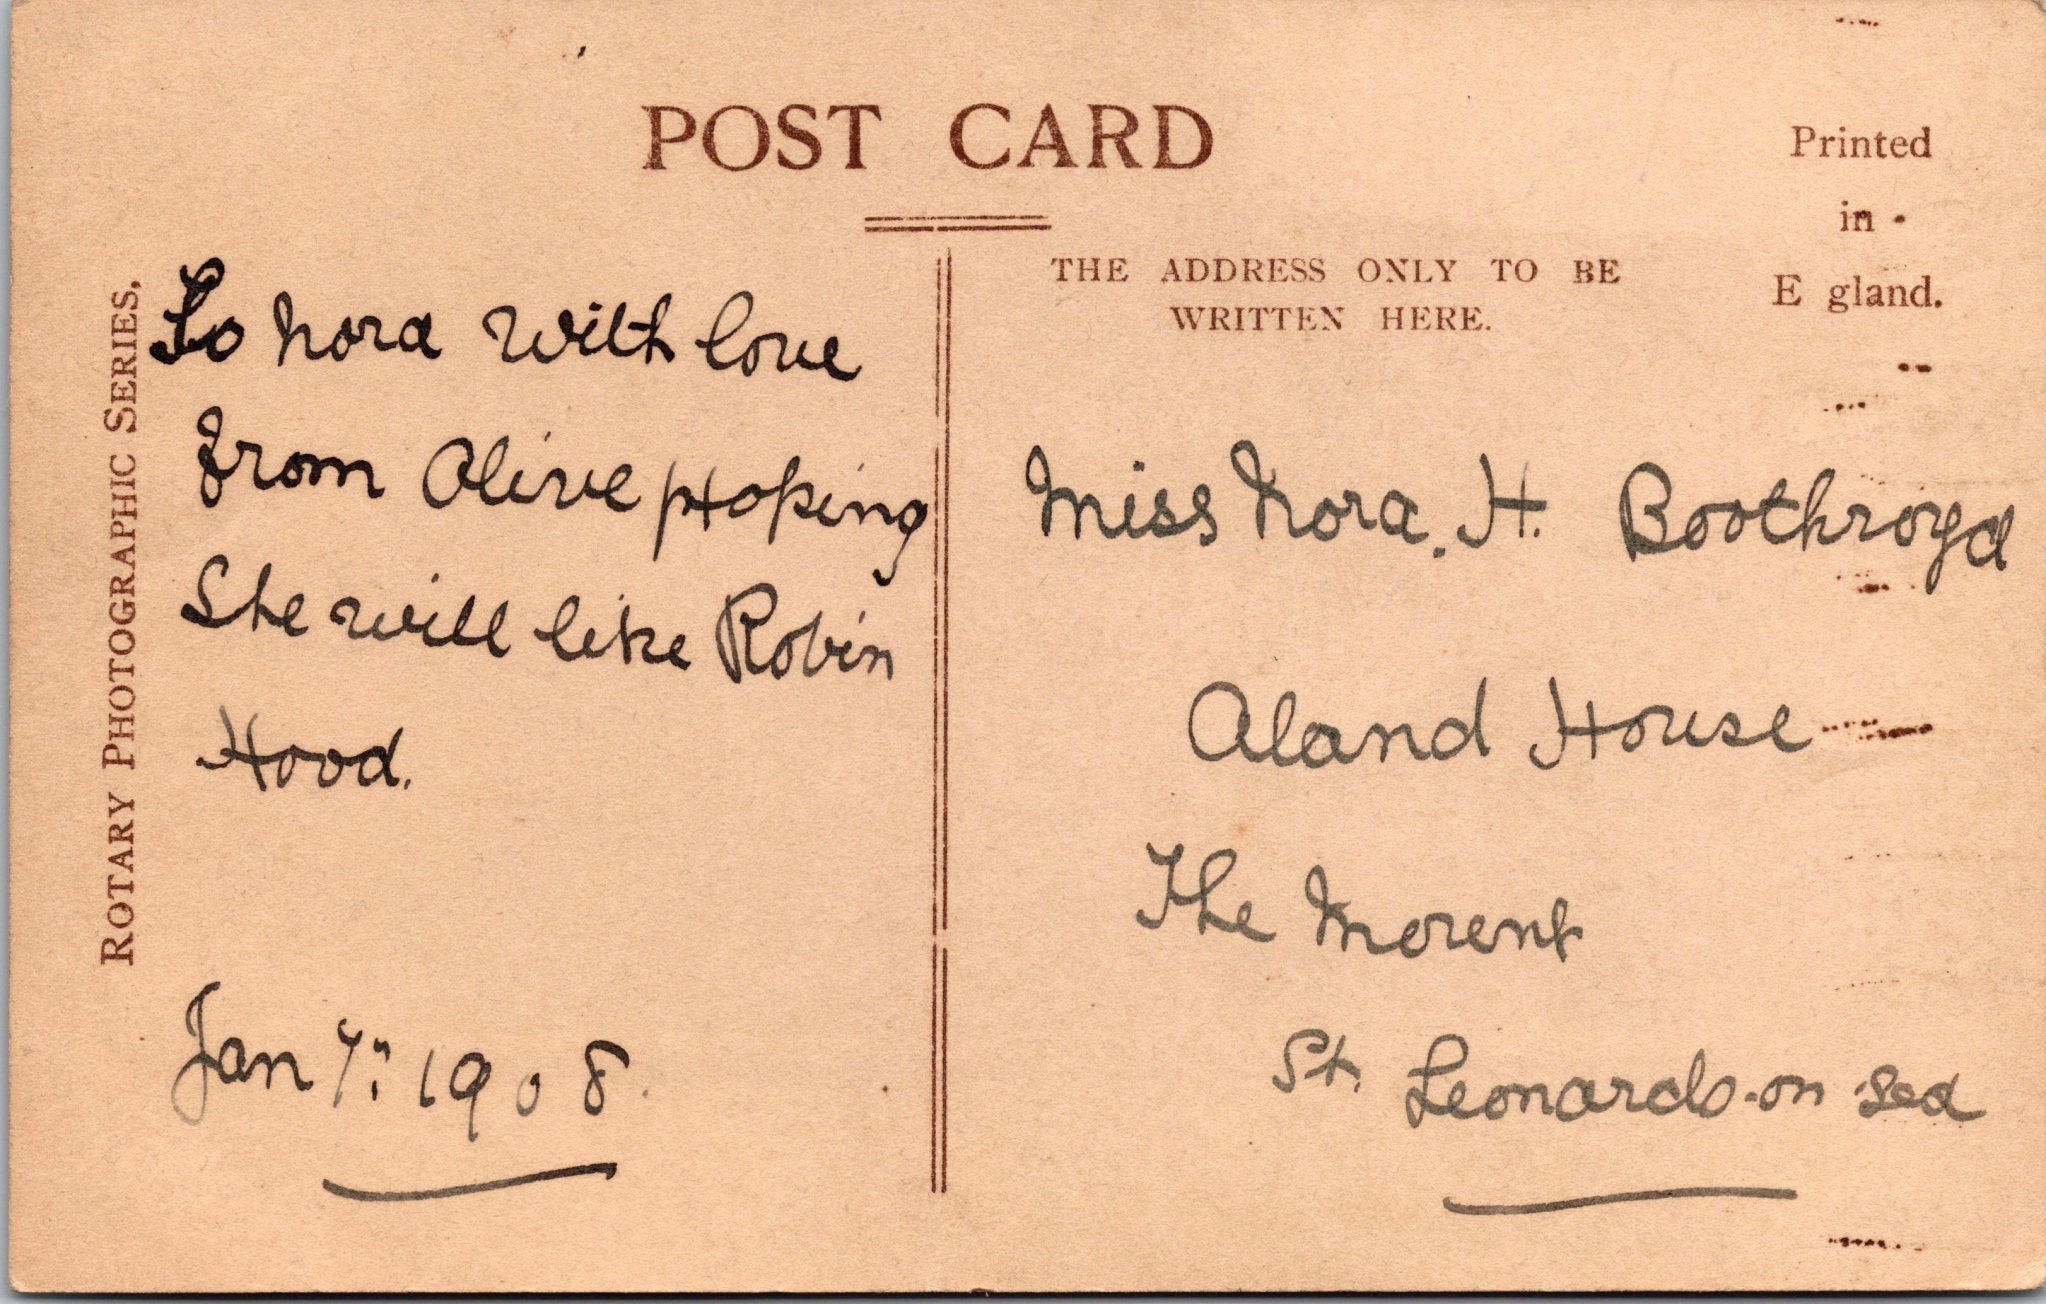 POST CARD
Printed
in
E gland.
THE ADDRESS ONLY TO BE
WRITTEN HERE.
ROTARY PHOTOGRAPHIC SERIES.
To Nora with love
from Olive Hoping
She will like Robin
Hood.
Jan 7th 1908.
Miss Nora. H. Boothroyd
Aland House
The
St. Leonards-on-Sea